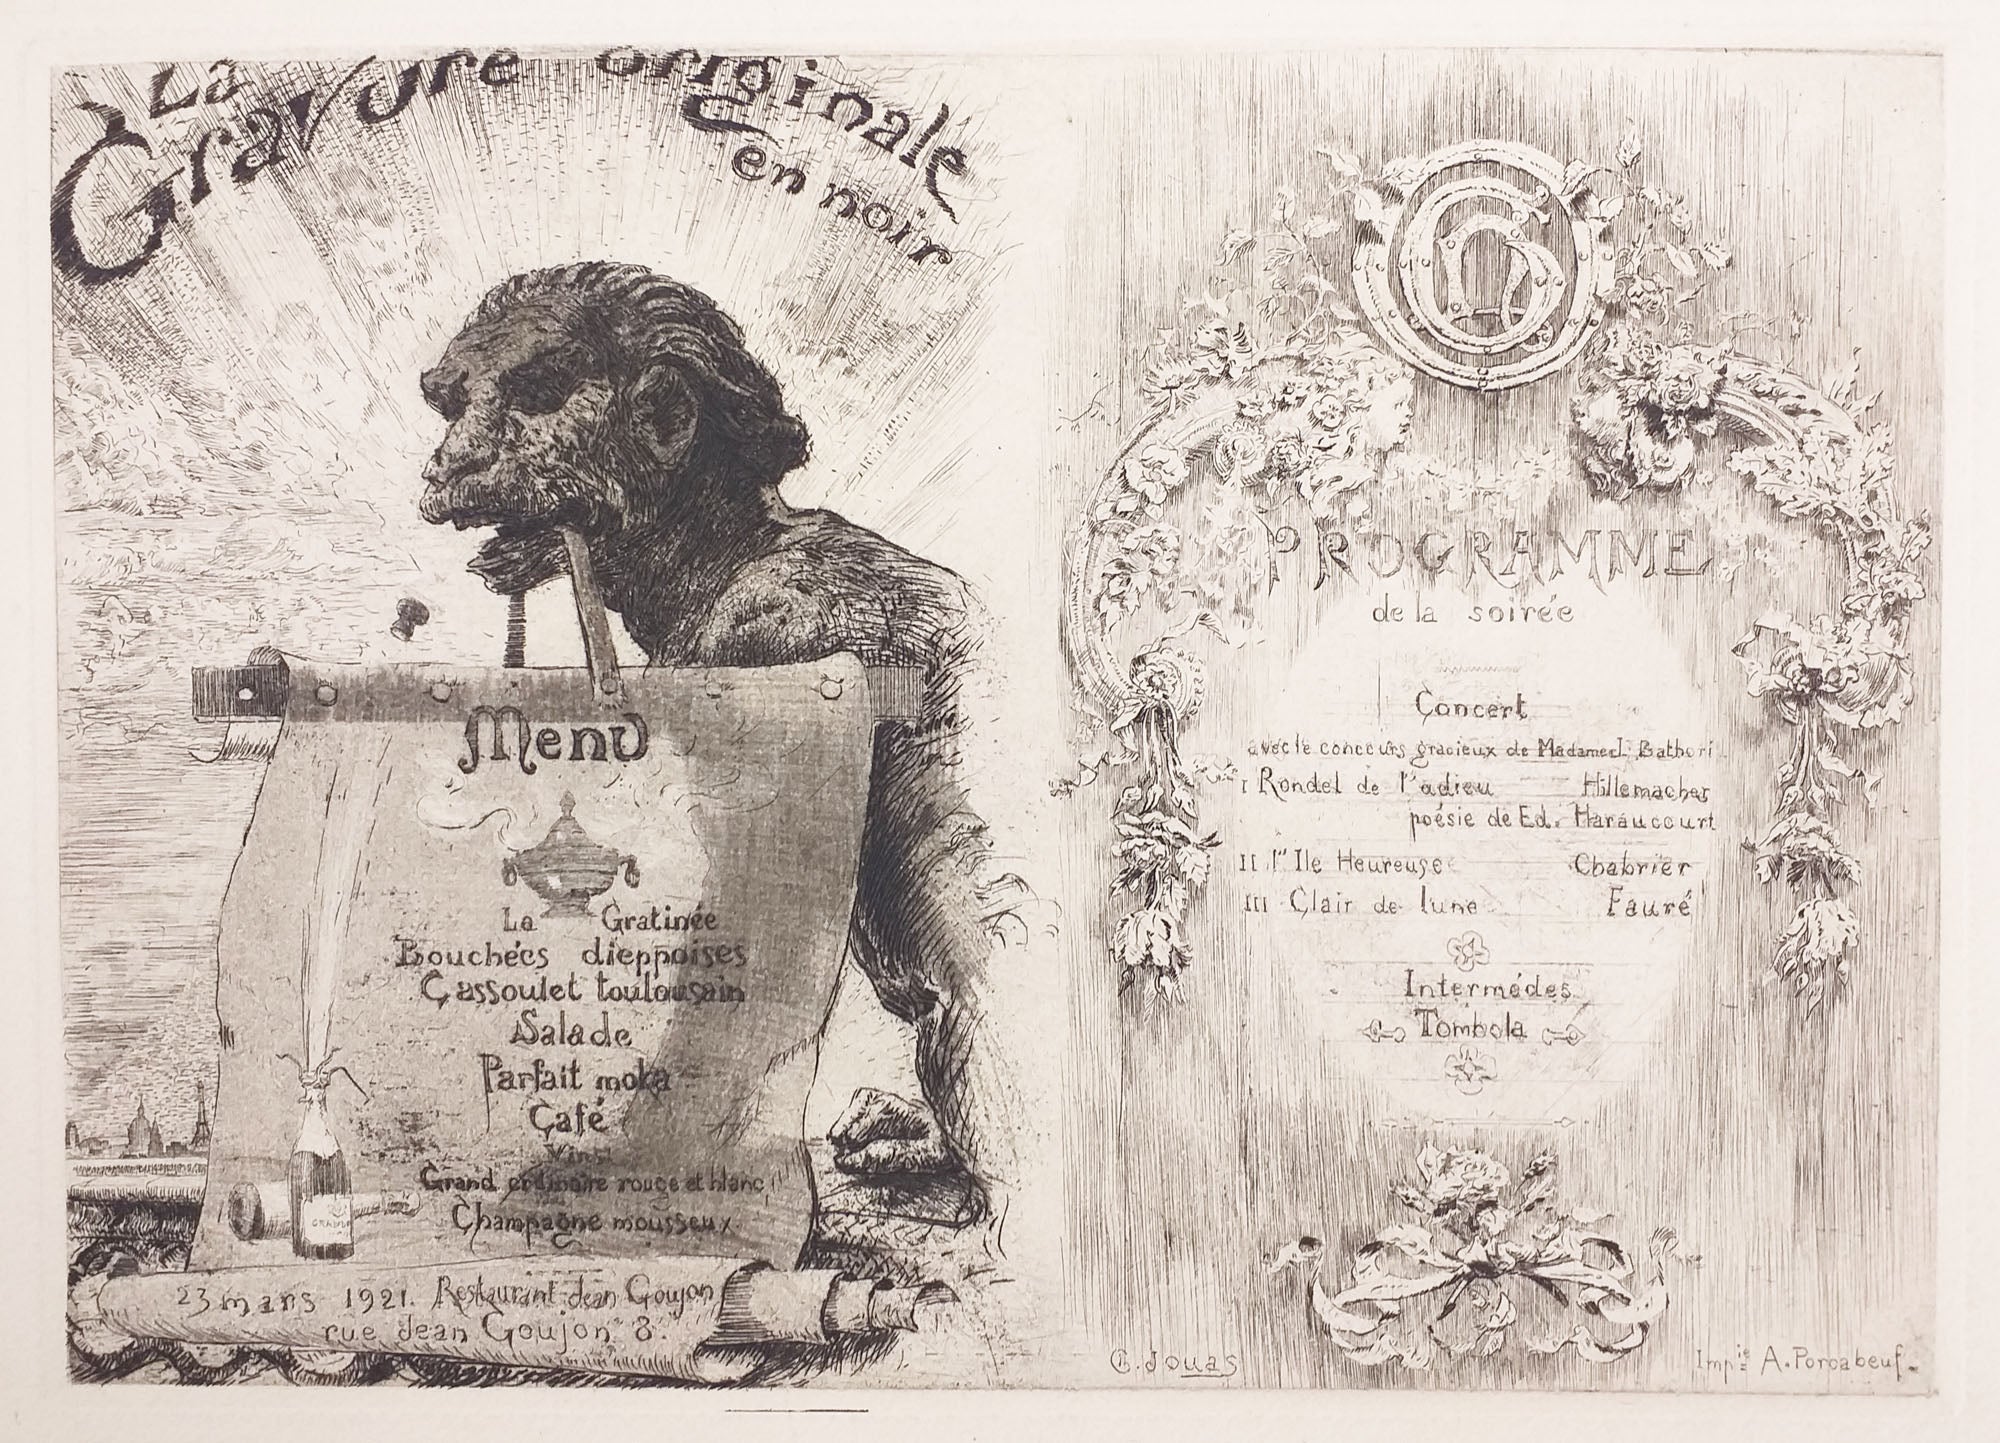 La
Gravure originale
en noir
Menu
La Gratinée
Bouchées dieppoises
Cassoulet toulousain
Salade
Parfait moka
Café
Vins
Grand ordinaire rouge et blanc
Champagne mousseux
23 mars 1921. Restaurant Jean Goujon
rue Jean Goujon 8.
PROGRAMME
de la soirée
Concert
avec le concours gracieux de Madame J. Bathori
I Rondel de l'adieu Hillemacher
poésie de Ed. Haraucourt
II l'Ile Heureuse Chabrier
III Clair de lune Fauré
Intermédes
Tombola
Ch. Jouas
Impie A. Porcabeuf.